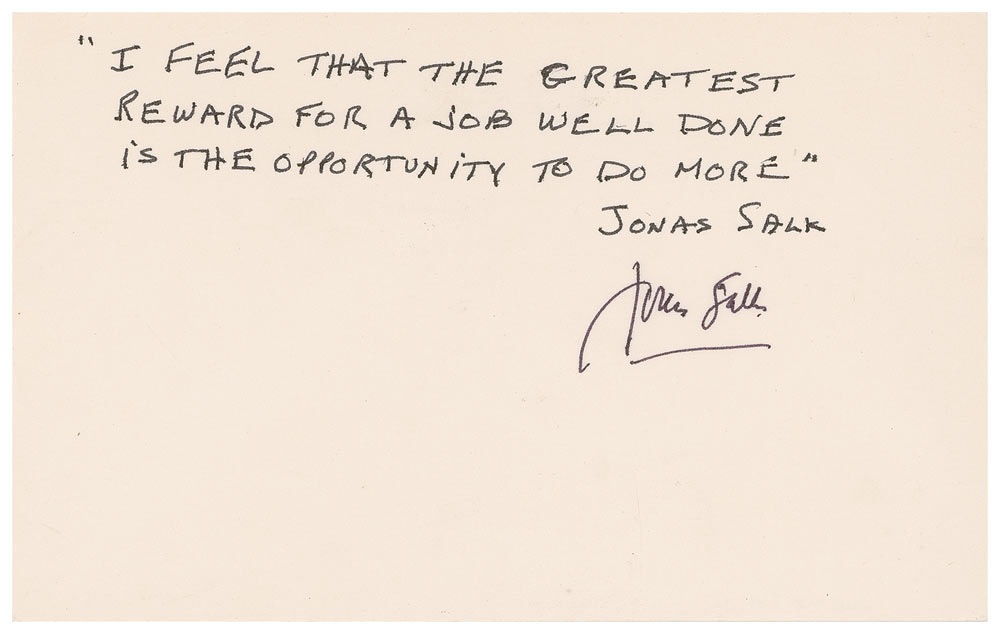 " I FEEL THAT THE GREATEST
REWARD FOR A JOB WELL DONE
iS THE OPPORTUNiTY TO DO MORE "
JONAS SALK
Jonas Salk